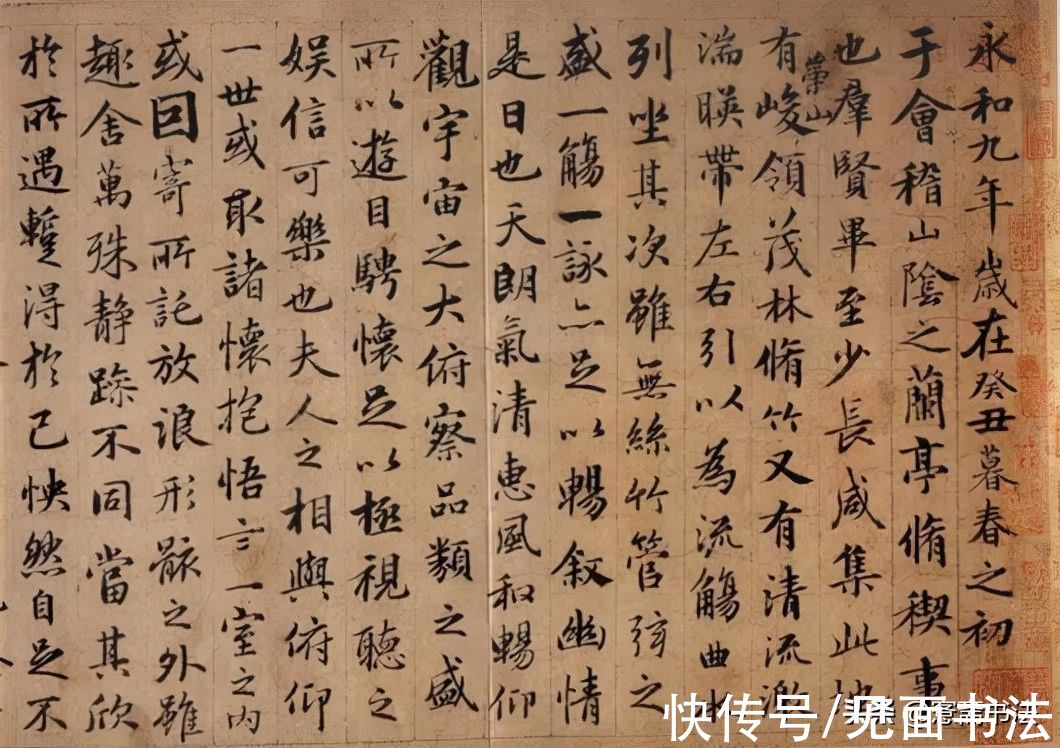 永和九年歲在癸丑暮春之初
于會稽山陰之蘭亭脩稧事
也羣賢畢至少長咸集此地
有崇山峻領茂林脩竹又有清流激
湍暎帶左右引以為流觴曲水
列坐其次雖無絲竹管弦之
盛一觴一詠亦足以暢叙幽情
是日也天朗氣清惠風和暢仰
觀宇宙之大俯察品類之盛
所以遊目騁懷足以極視聽之
娛信可樂也夫人之相與俯仰
一世或取諸懷抱悟言一室之內
或因寄所託放浪形骸之外雖
趣舍萬殊静躁不同當其欣
於所遇蹔得於己怏然自足不
快传号/见面书法